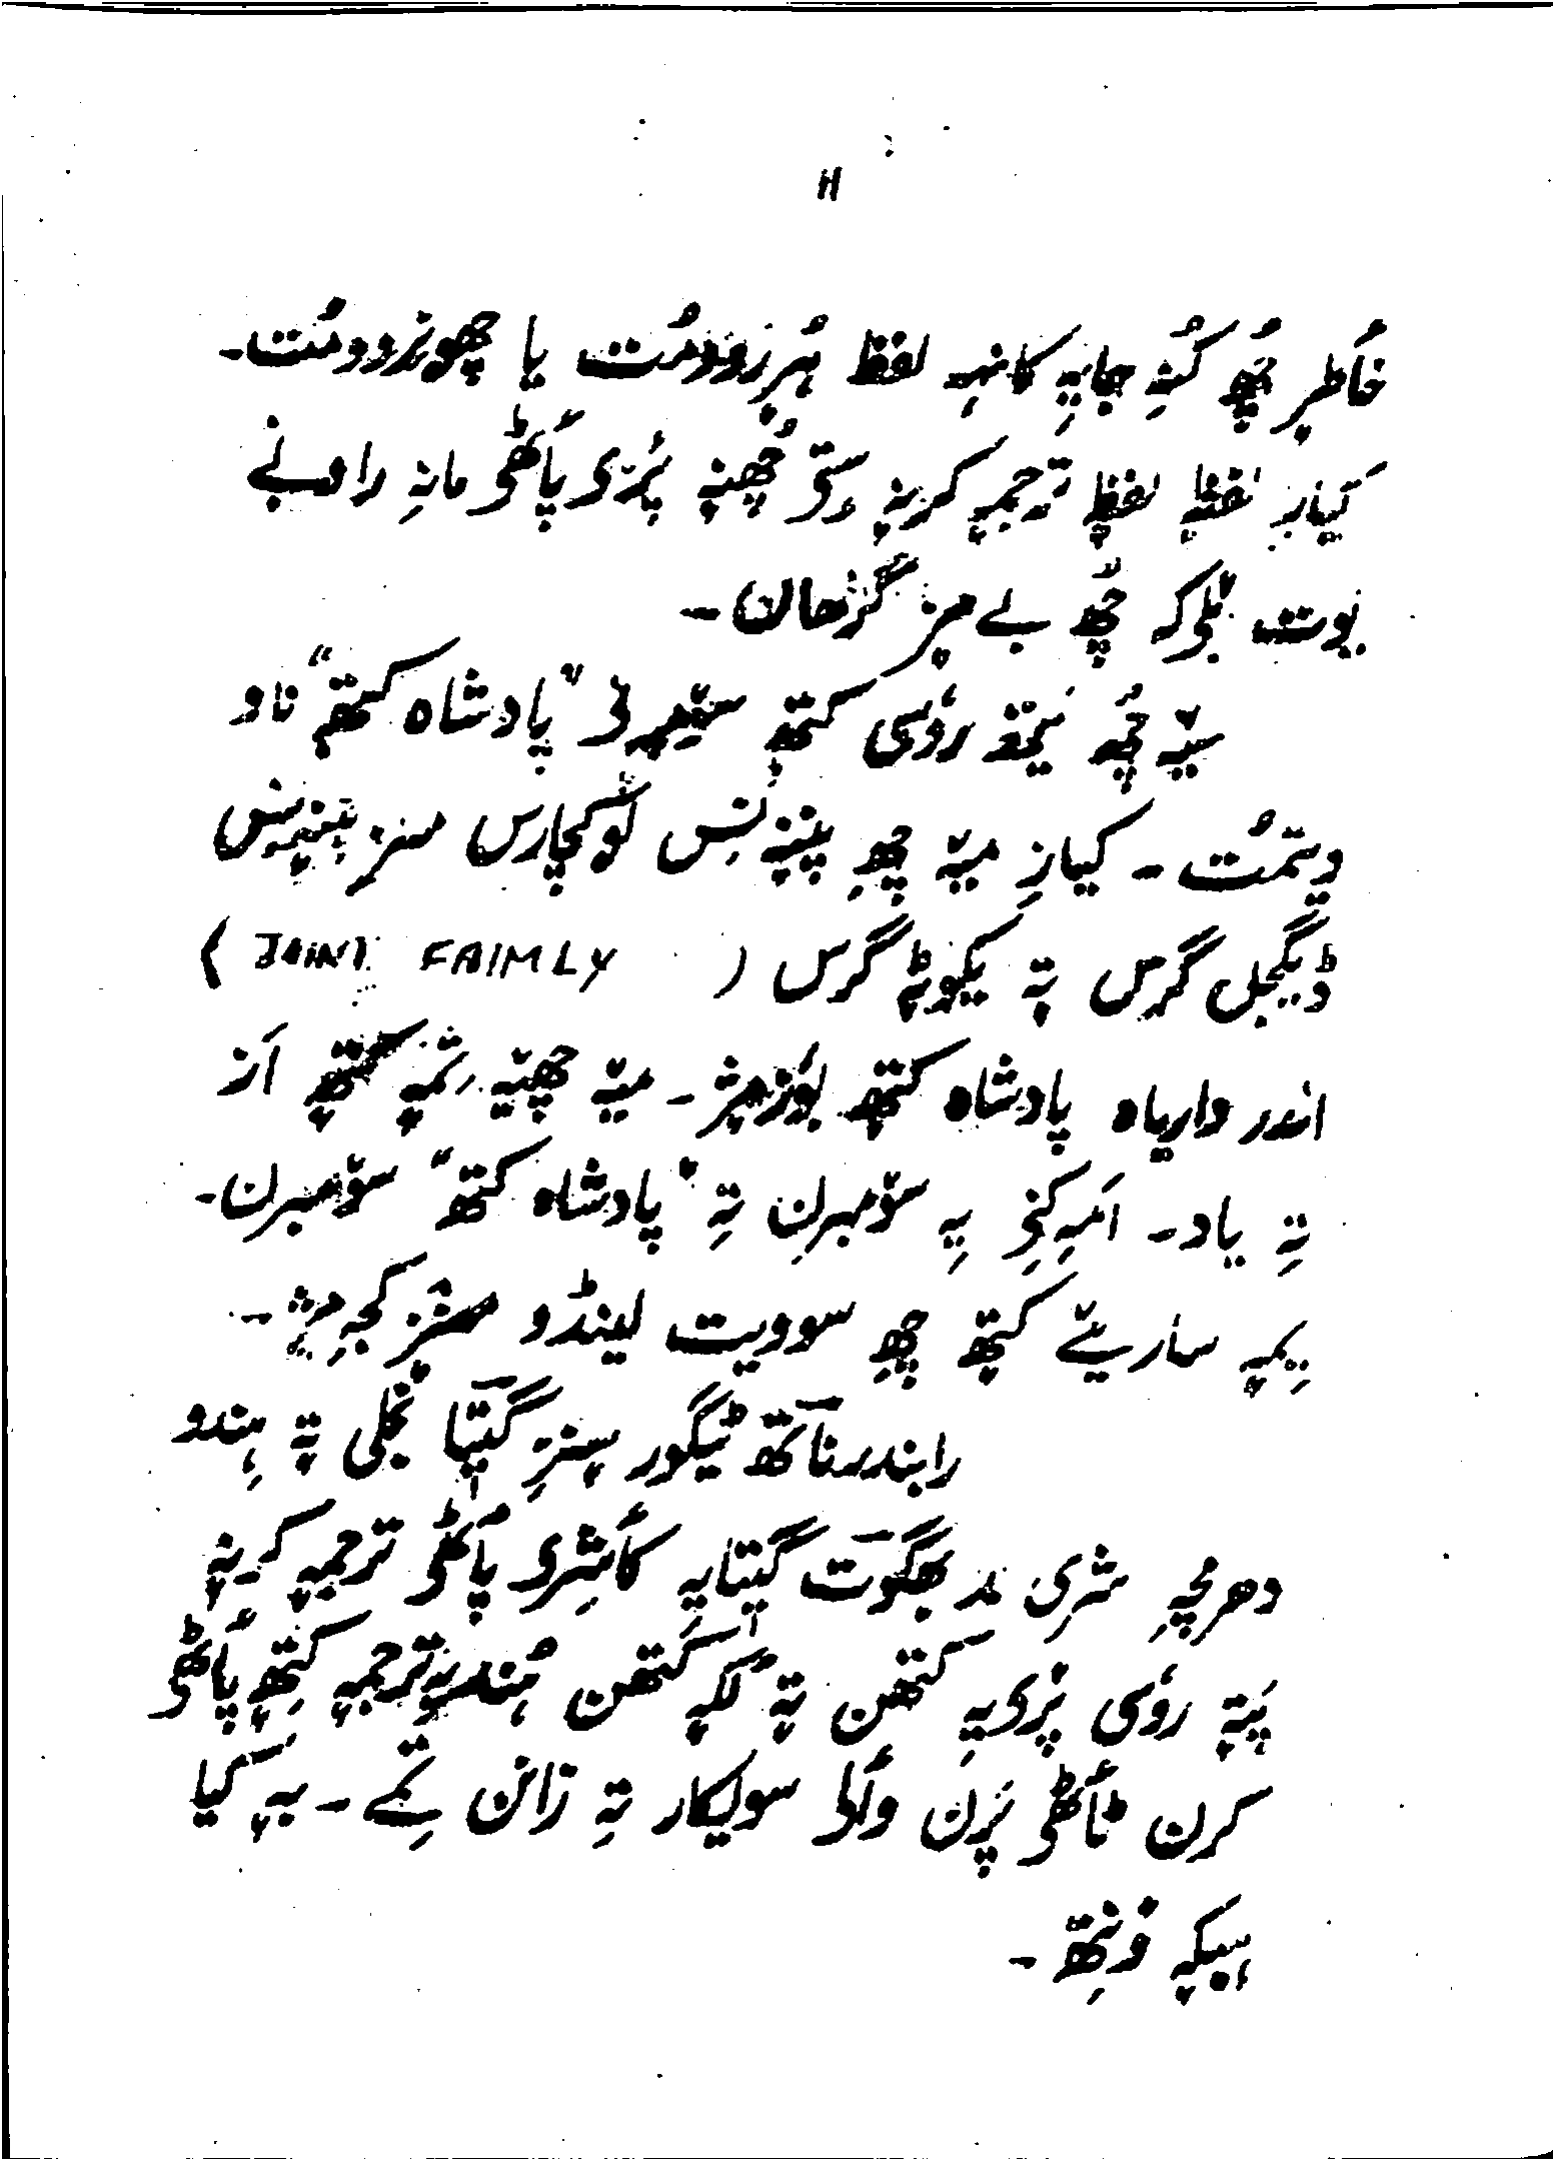 11
خٲطرٕ چھُ کُنہِ جایہِ کانٛہہ لفظ ہُرٕروومُت یا چھوٚنٛرروومُت۔
کیازِ لفظا لفظٕ ترجمہٕ کرنہٕ سٟتۍ چھُنہٕ پٔزۍ پٲٹھۍ مانہِ راونے
یوت بٔلکہ چھُ بے مزٕ گژھان۔
میٚہ چھُ یَتھ روٗسی کتھہٕ سوٚمبرنی "پادشاہ کتھٕ" ناو
دیتمُت۔ کیازِ میٚہ چھِ پننِس لوٚکچارس منز پننِس
ڈیجل گرس تہٕ یکوٹہٕ گرس ( JOINT FAIMLY )
اندر واریاہ پادشاہ کتھہٕ بوزمژ۔ میٚہ چھیٚہ تِمہٕ کتھہٕ از
تہِ یاد۔ امہِ کنۍ یہِ سوٚمبرن تہِ "پادشاہ کتھہٕ" سوٚمبرن۔
یمہٕ سارِیے کتھہٕ چھِ سوویت لینڈو منزٕ کجہِ مژ۔
رابندرناتھ ٹیگور سنز گیتا نجلی تہٕ ہندو
دھرمچہِ شری مد بھگوت گیتایہِ کٲشرۍ پٲٹھۍ ترجمہٕ کرنہٕ
پتہٕ روٗسی پرٛیہِ کتھن تہٕ لُکہٕ کتھن ہُند یہِ ترجمہٕ کِتھہٕ پٲٹھۍ
کرن ٹٲٹھۍ پرن وٲلۍ سویکار تہِ زانن تِمے۔ بہٕ کیا
ہیکہٕ ؤنِتھ۔